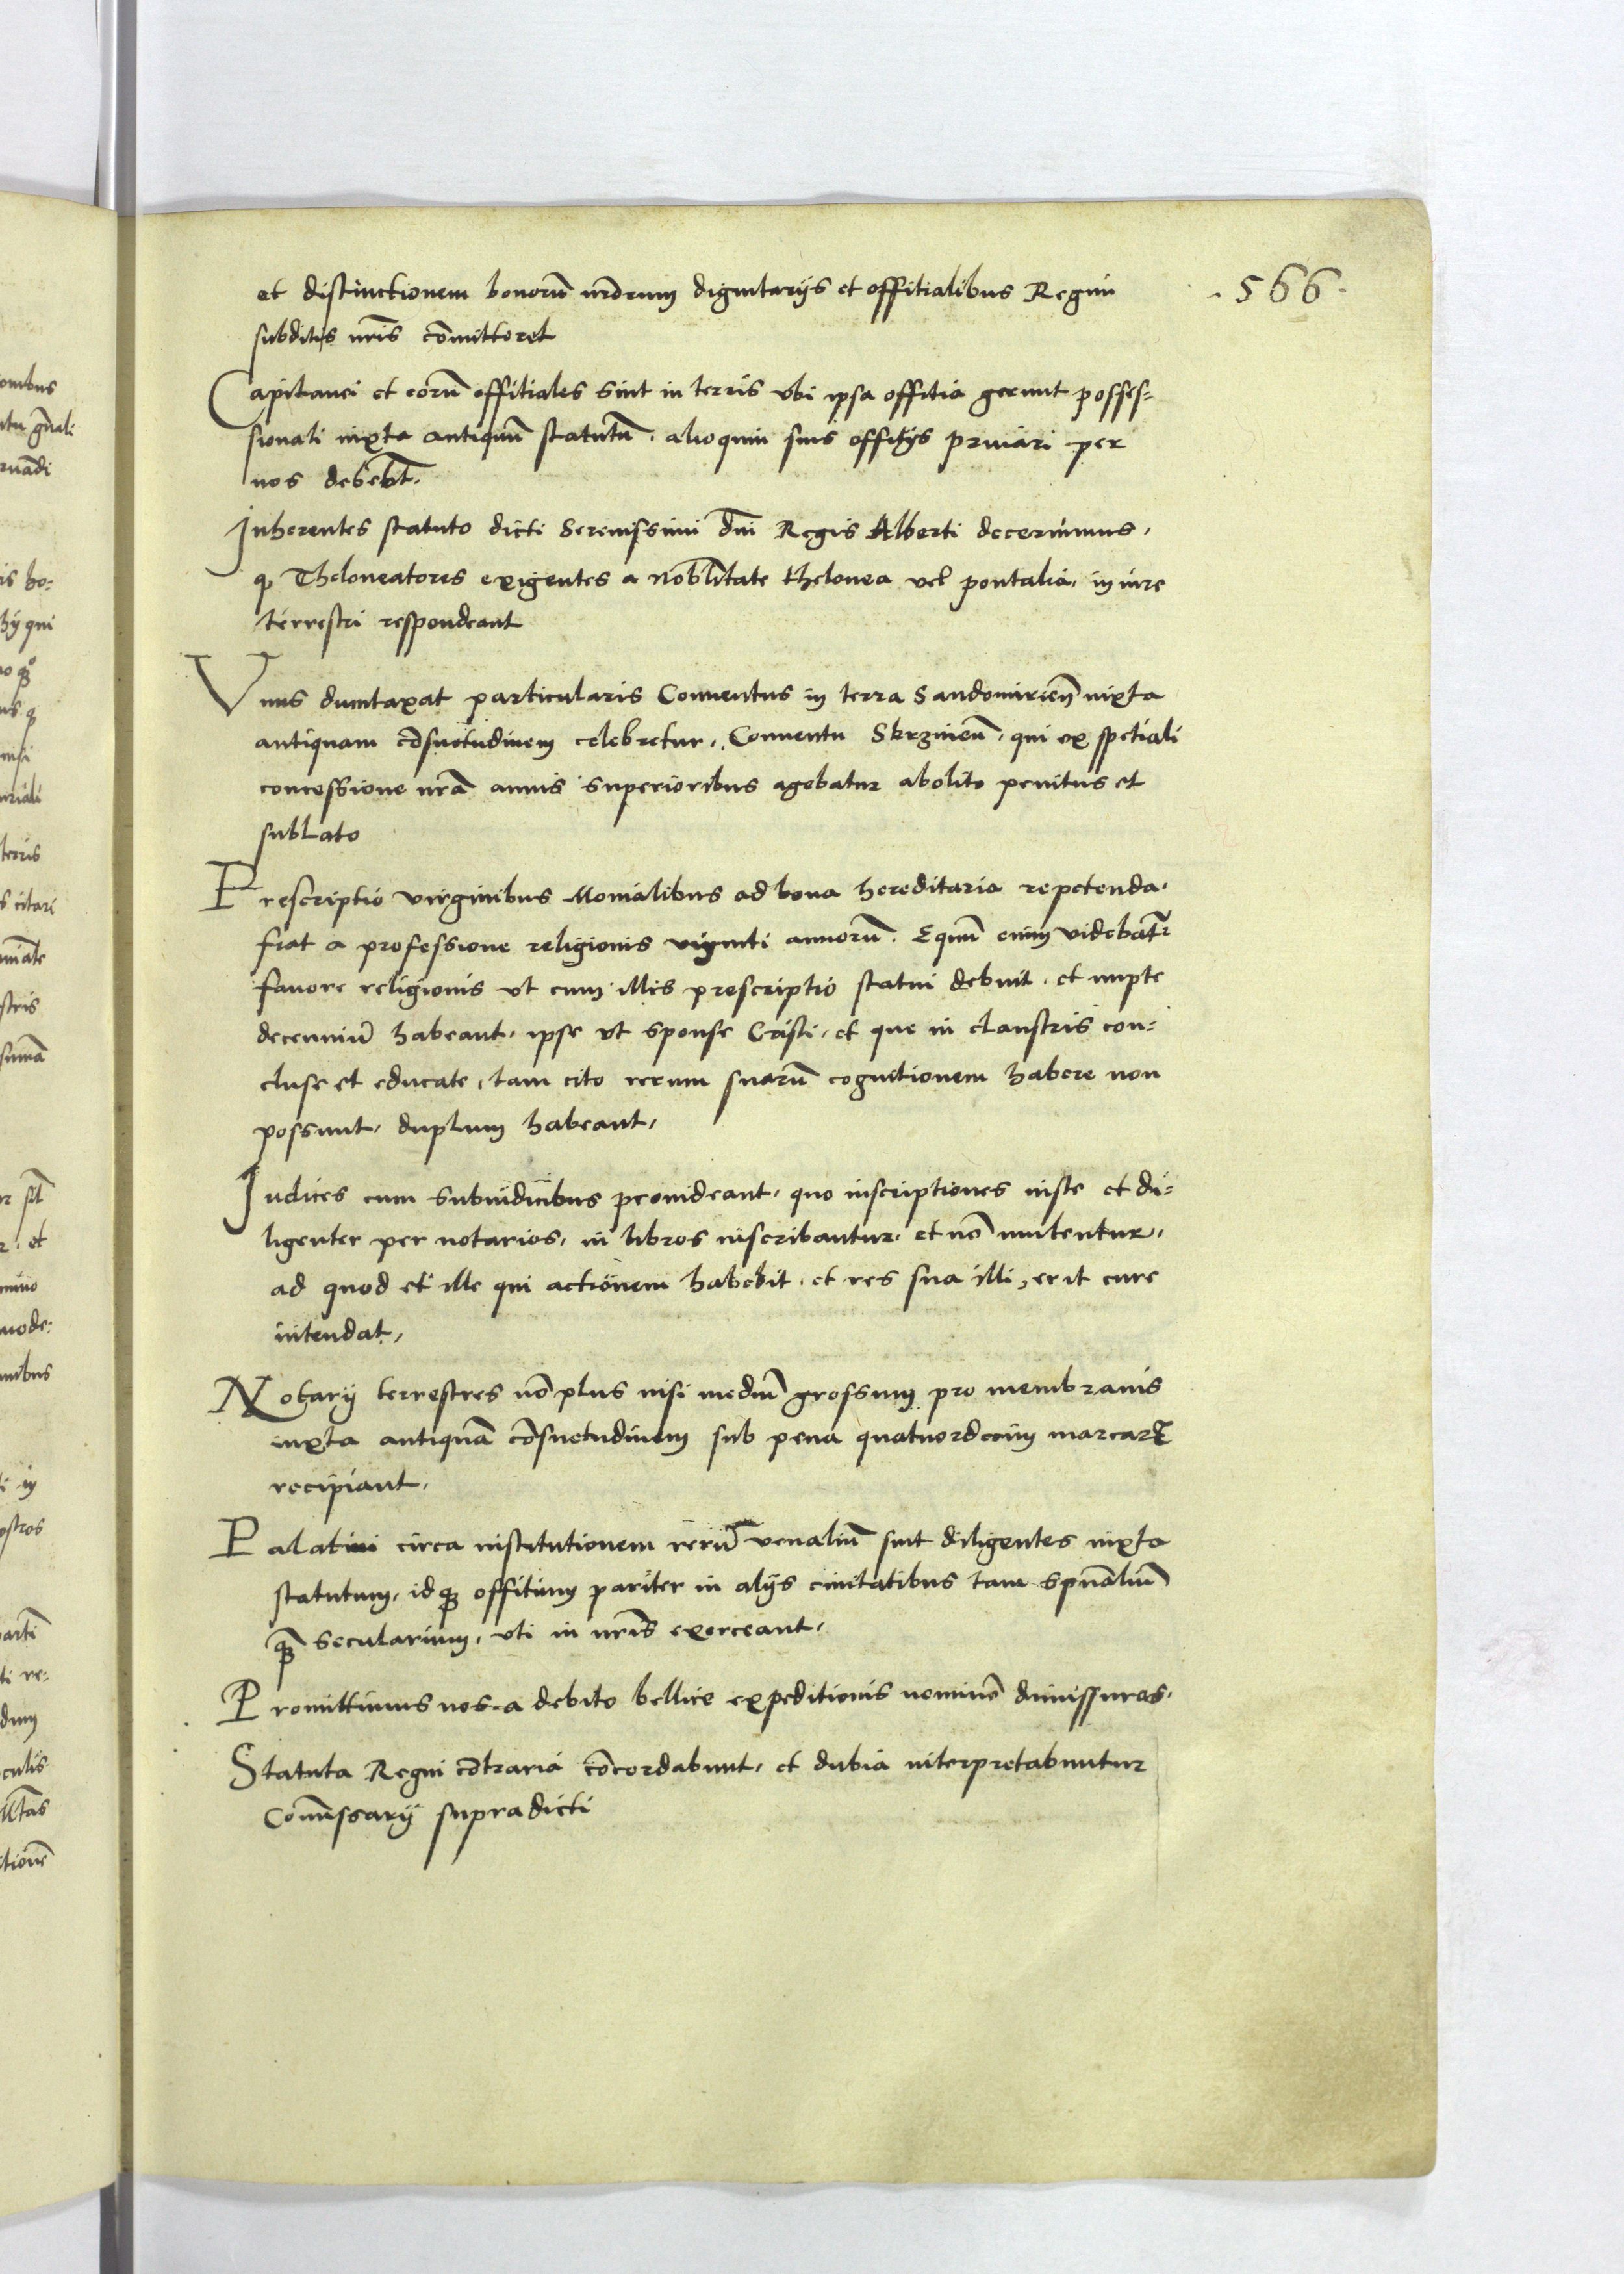 .566.
et distinctionem bonorū nr̄orum dignitarijs et offitialibus Regni
subditis nr̄is cōmitteret
Capitanei et eorū offitiales sint in terris vbi ipsa offitia gerunt posses-
sionati iuxta antiquū statutū. alioquin suis offitijs priuari per
nos debebt̄.
Inherentes statuto dicti Serenissimi dn̄i Regis Alberti decernimus.
q Theloneatores exigentes a nobilitate thelonea vel pontalia. in iure
terrestri respondeant
Vnus dumtaxat particularis Conuentus in terra Sandomirien̄ iuxta
antiquam cōsuetudinem celebretur. Conuentu Skrzinen̄. qui ex spetiali
concessione nrā annis superioribus agebatur abolito penitus et
sublato
Prescriptio virginibus Monialibus ad bona hereditaria repetenda.
fiat a professione religionis viginti annorū. Equū enim videbatr̄
fauore religionis vt cum illis prescriptio statui debuit. et nupte
decenniū habeant. ipse vt sponse Cristi. et que in claustris con-
cluse et educate. tam cito rerum suarū cognitionem habere non
possunt. duplum habeant.
Iudices cum Subiudicibus prouideant. quo inscriptiones iuste et di-
ligenter per notarios. in libros inscribantur. et nō mutentur.
ad quod et ille qui actionem habebit. et res sua illi, erit cure
intendat.
Notarij terrestres nō plus nisi mediū grossum pro membranis
iuxta antiquā cōsuetudinem sub pena quatuordecim marcarꝝ
recipiant.
Palatini circa institutionem rerū venaliū sint diligentes iuxta
statutum. idqꝫ offitium pariter in alijs ciuitatibus tam spūaliū
qꝫ̄ secularium. vti in nr̄is exerceant.
Promittimus nos a debito bellice expeditionis neminē dimissuros.
Statuta Regni cōtraria cōcordabunt. et dubia interpretabuntur
Comissarij supradicti